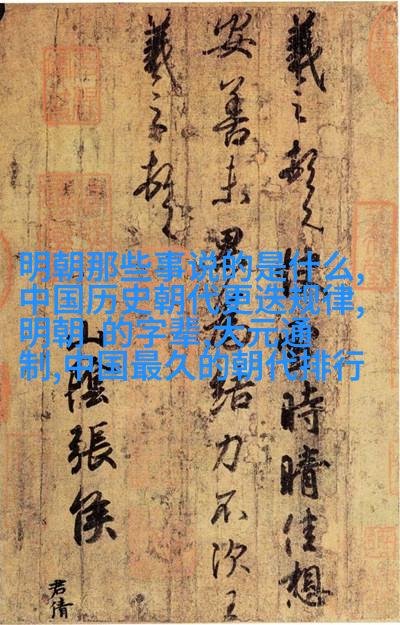 羲之頓首快雪時晴佳想
安善未果為結力不次王
羲之頓首
山陰張侯
君倩
明朝那些事说的是什么,
中国历史朝代更迭规律,
明朝 的字辈,大元通
制,中国最久的朝代排行